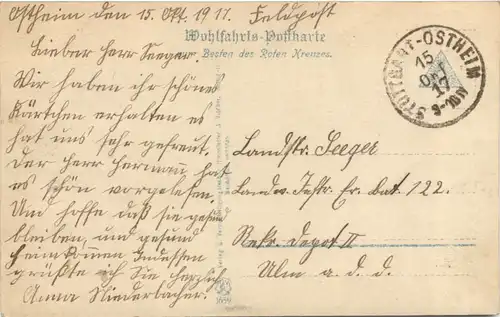 Ostheim den 15. Okt. 1917. Feldpost
Wohlfahrts-Postkarte
Besten des Roten Kreuzes.
STUTTGART-OSTHEIM
15
OKT
17
9-10 N
Lieber Herr Seeger.
Wir haben ihr schönes
Kärtchen erhalten es
hat uns sehr gefreut.
Der Herr Hermann hat
es schön vorgelesen.
Und hoffe daß sie gesund
bleiben, und gesund
heimkommen Indessen
grüßte ich Sie herzlich
Anna Niederbacher.
Landstr. Seeger
Landw. Inftr. Er. Bat. 122.
Rekr. Depot II
Ulm a. d. d.